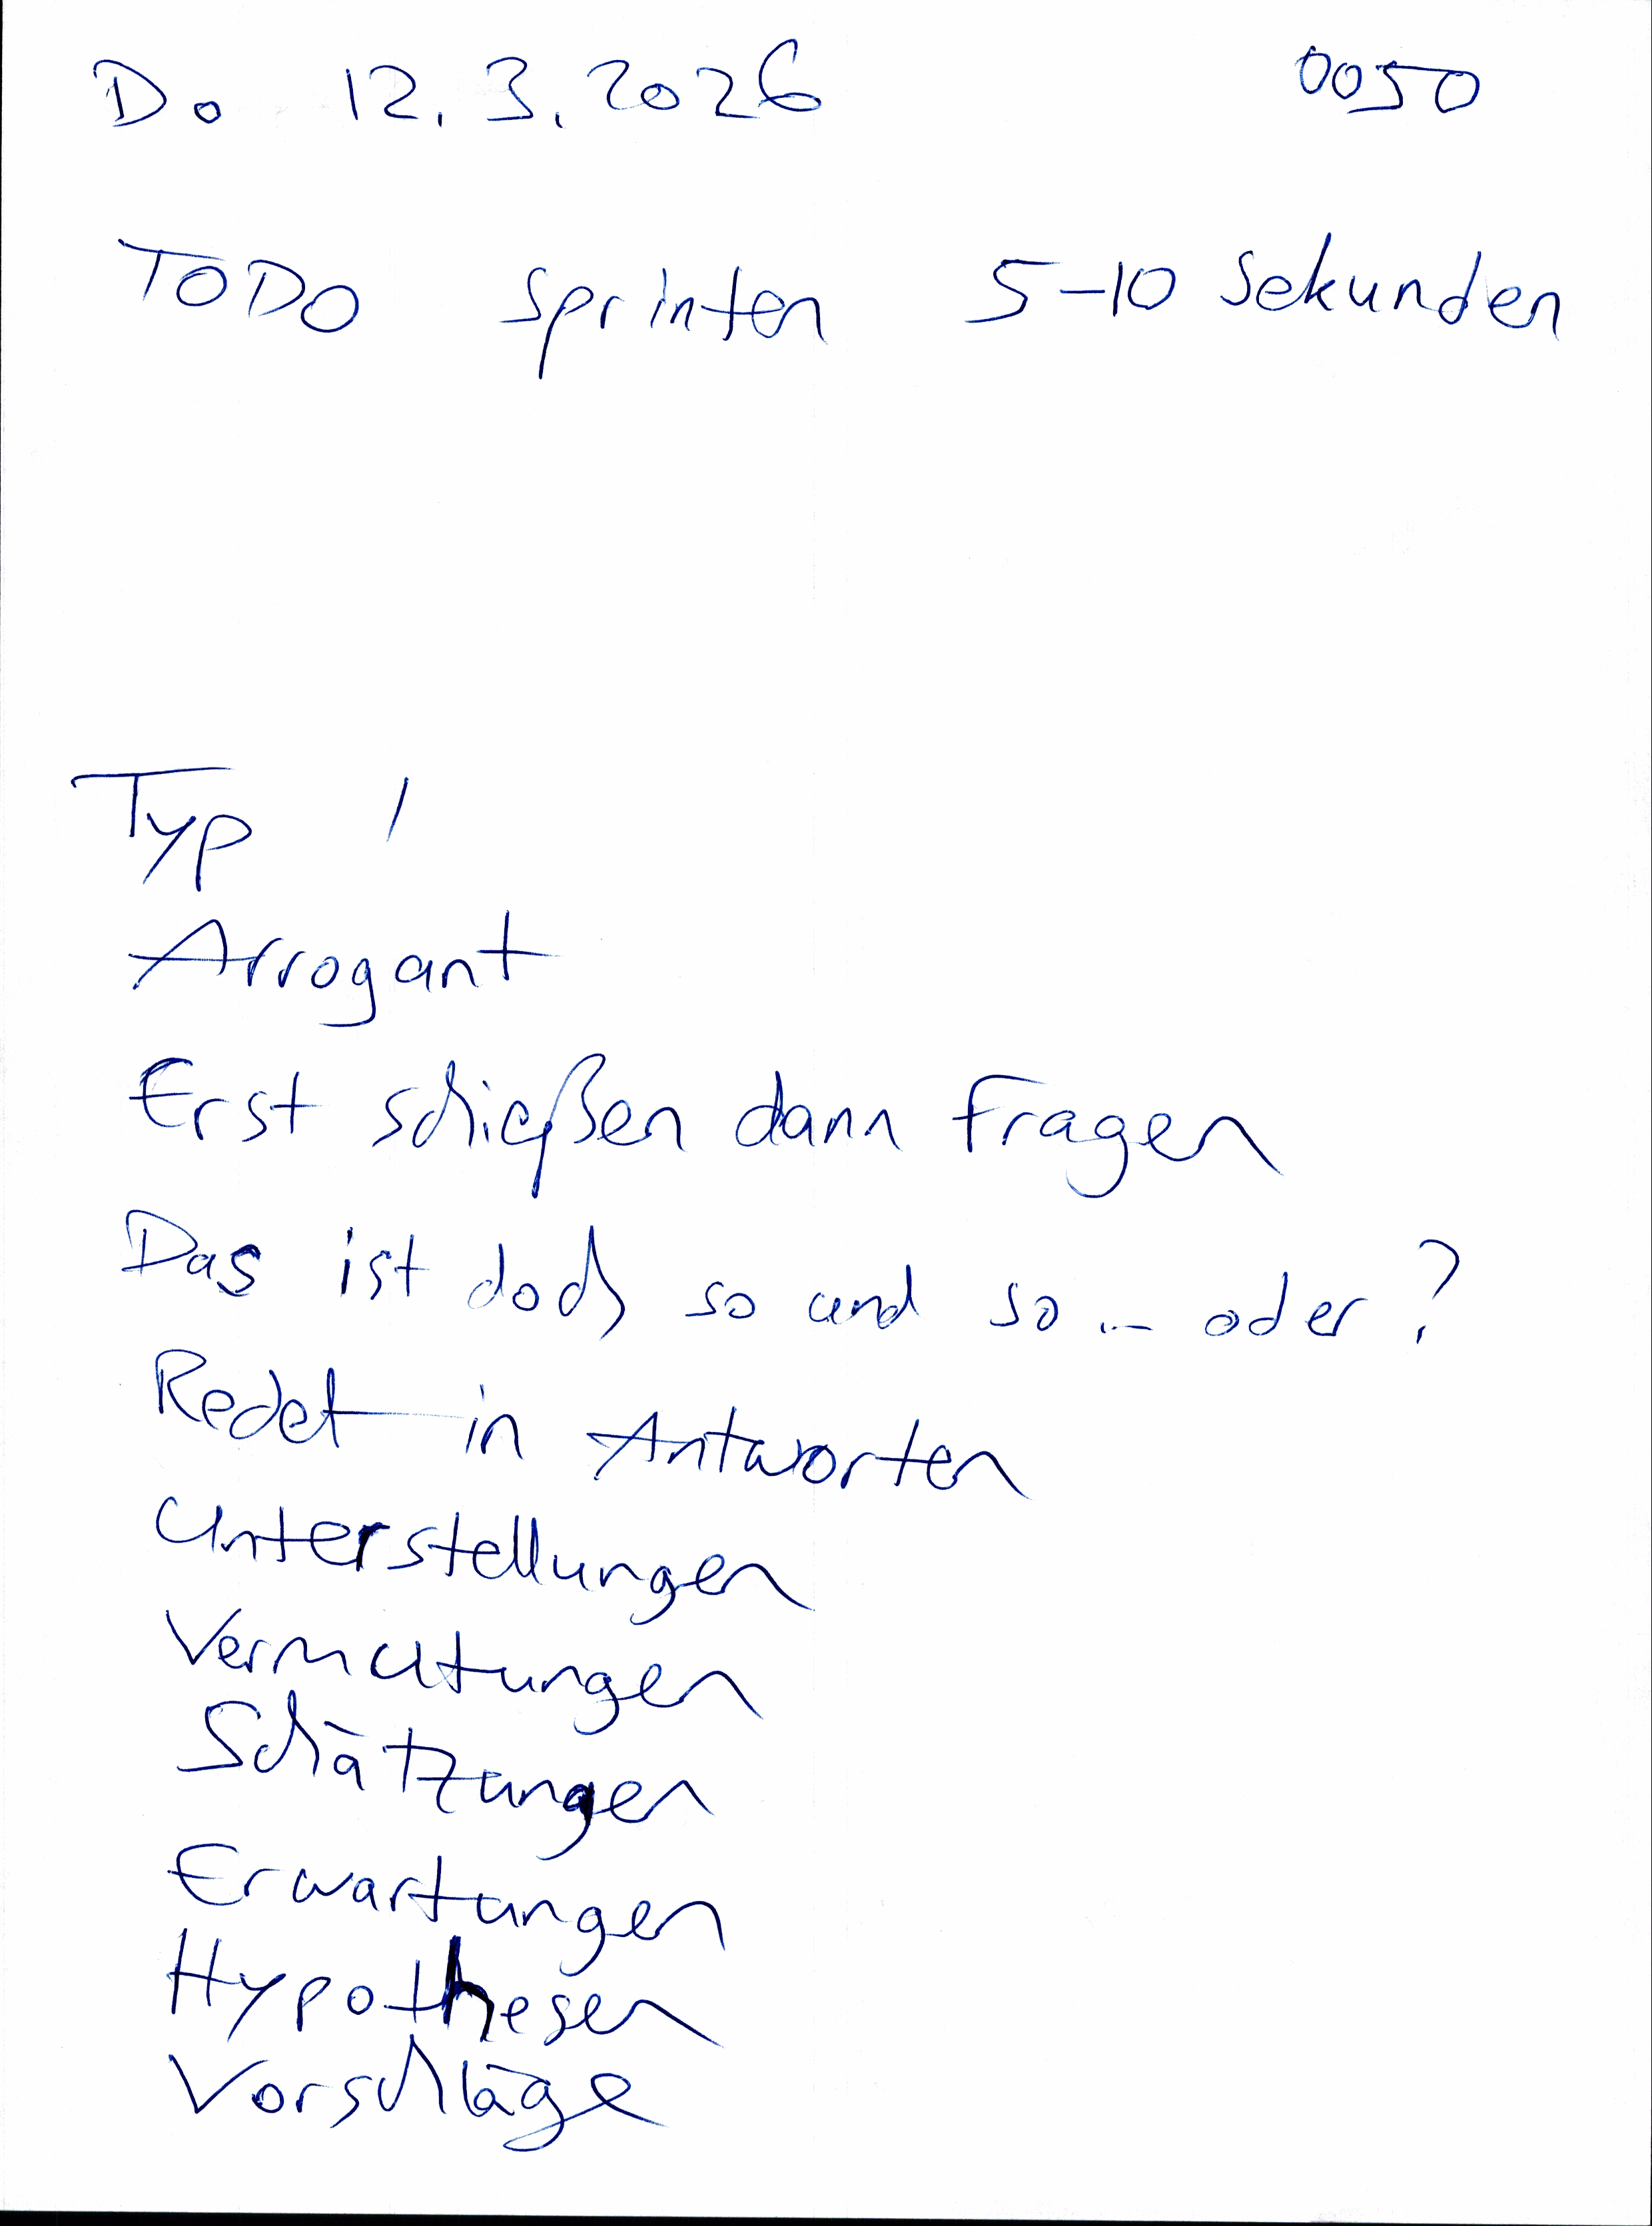 Do 12.3.2026 0050
TODO Sprinten 5-10 Sekunden
Typ 1
Arrogant
Erst schießen dann Fragen
Das ist doch so und so ... oder?
Redet in Antworten
Unterstellungen
Vermutungen
Schätzungen
Erwartungen
Hypothesen
Vorschläge